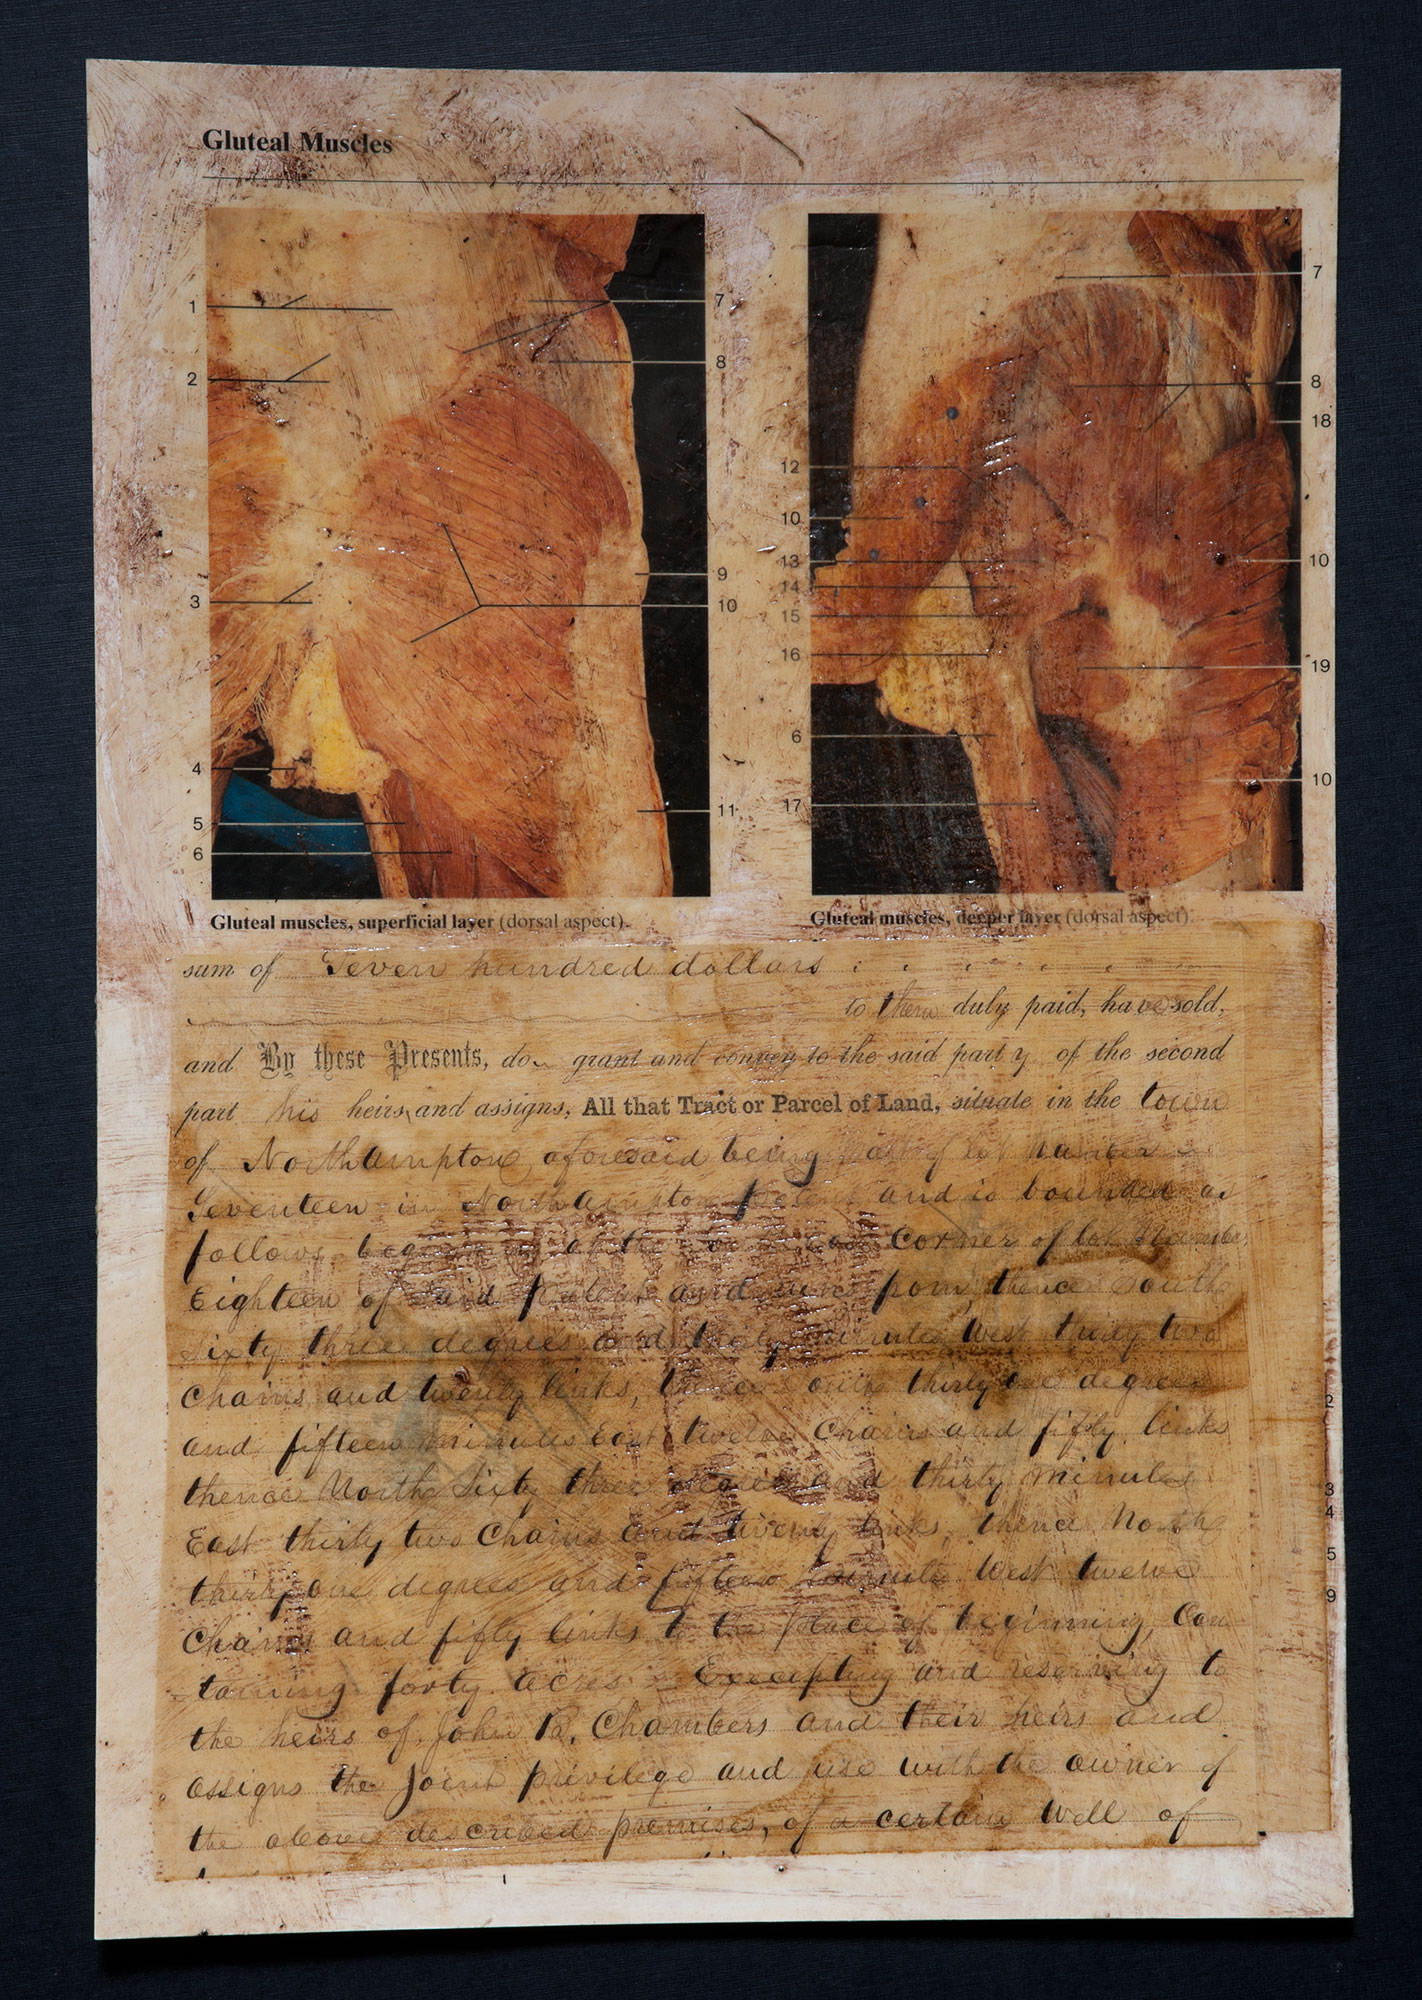 Gluteal Muscles
1
2
3
4
5
6
7
8
9
10
11
12
10
13
14
15
16
6
17
7
8
18
10
19
10
Gluteal muscles, superficial layer (dorsal aspect).
Gluteal muscles, deeper layer (dorsal aspect).
sum of Seven hundred dollars
to them duly paid, have sold,
and By these Presents, do grant and convey to the said party of the second
part his heirs and assigns, All that Tract or Parcel of Land, situate in the town
of Northampton aforesaid being part of lot number
Seventeen in Northampton Patent and is bounded as
follows, beginning at the Corner of lot Number
Eighteen of said Patent and runs from thence South
Sixty three degrees and thirty minutes West thirty two
Chains and twenty links, thence South thirty one degrees
and fifteen minutes East twelve Chains and fifty links
thence North Sixty three degrees and thirty minutes
East thirty two Chains and twenty links, thence North
thirty one degrees and fifteen minutes West twelve
Chains and fifty links to the place of beginning, Con
taining forty acres. Excepting and reserving to
the heirs of John B. Chambers and their heirs and
assigns the Joint privilege and use with the owner of
the above described premises, of a certain Well of
2
3
4
5
9